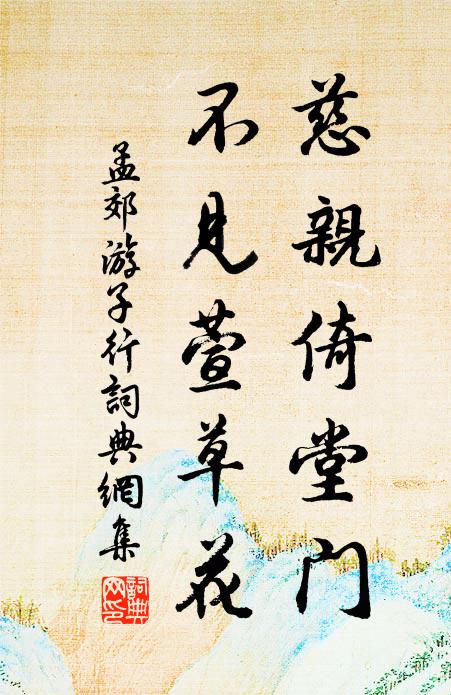 慈親倚堂門
不見萱草花
孟郊游子行詞典網集
詞典
网印